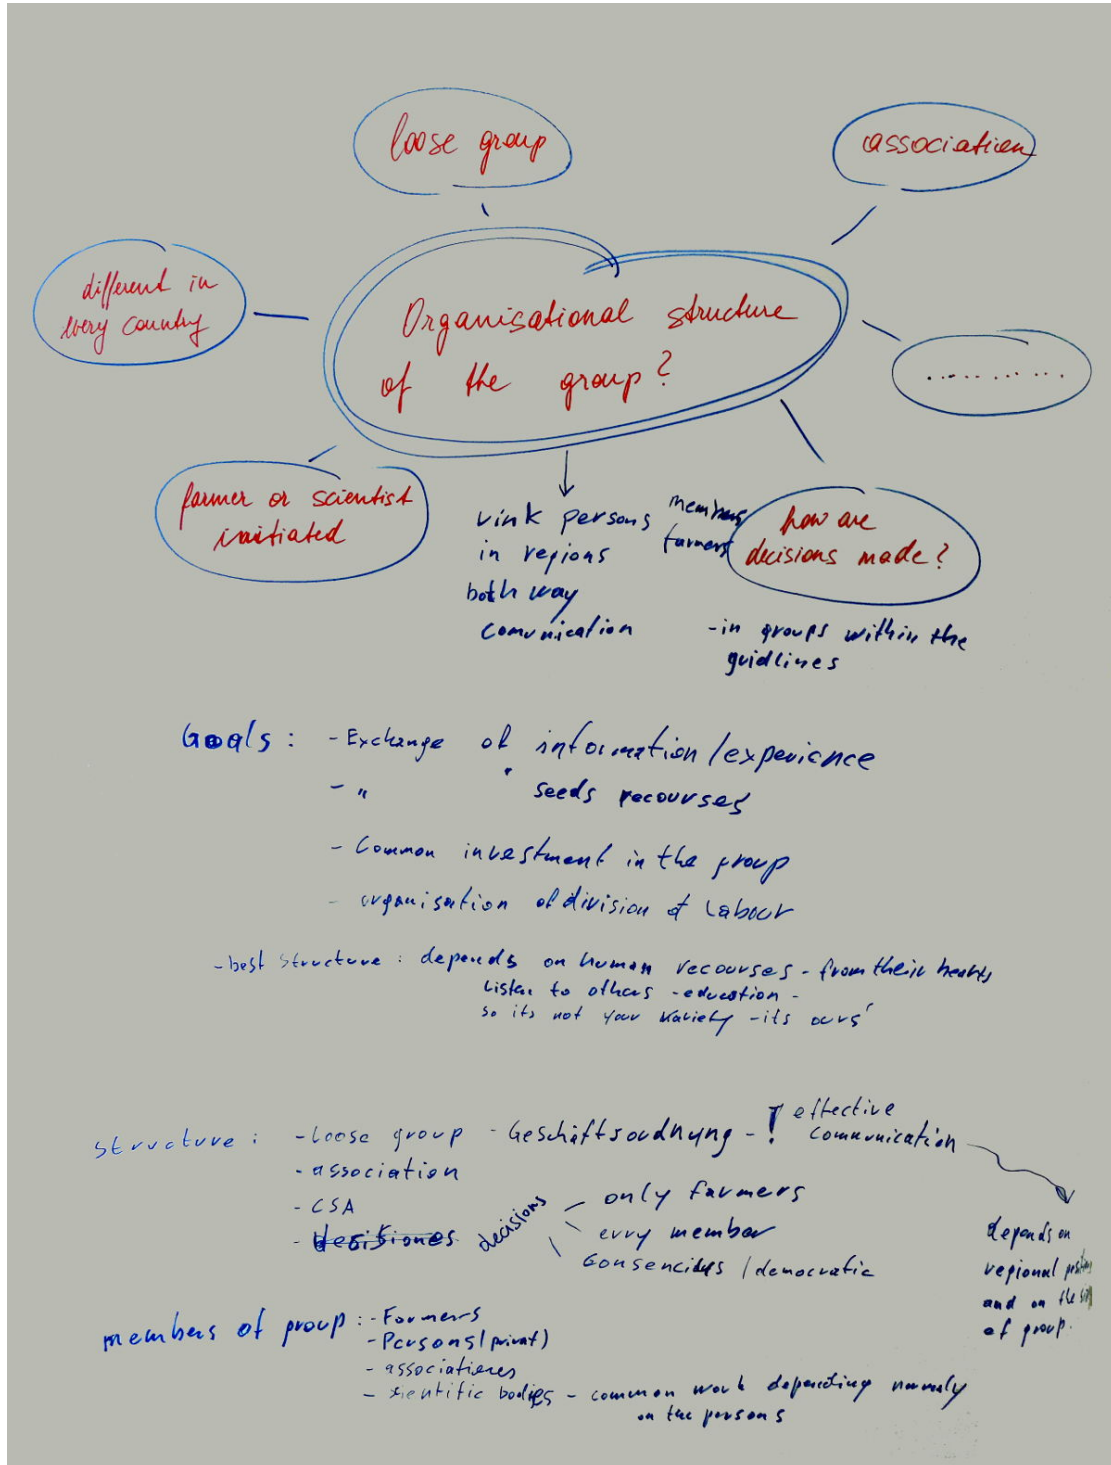 loose group
association
different in
every country
Organisational structure
of the group?
...........
farmer or scientist
initiated
Link persons
in regions
both way
comunication
members
farmers
how are
decisions made?
- in groups within the
guidlines
Goals : - Exchange of information / experiance
- " " seeds recourses
- Common investment in the group
- organisation of division of Labour
- best structure : depends on human recourses - from their hearts
Listen to others - education -
so its not your Variety - its ours'
structure : - Loose group - Geschäftsordnung - ! effective
communication
- association
- CSA
- desitiones decisions
only farmers
evry member
Consencious / democratic
depends on
regional
and on the
of group.
members of group : - Farmers
- Persons (privat)
- associationes
- scientific bodies - common work depending namely
on the persons